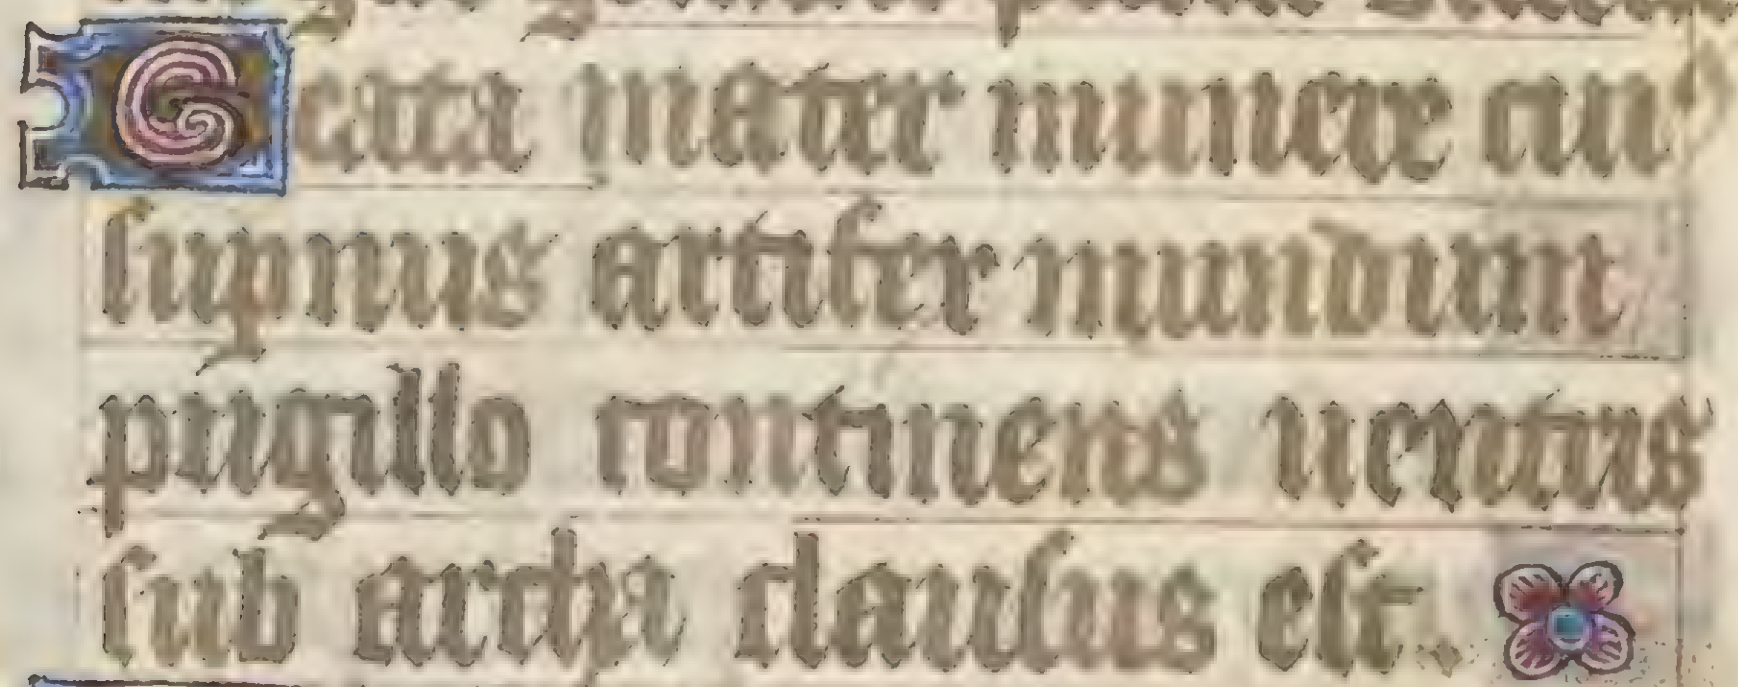 Geata mater munere cui'
supnus artifer mundum
pugillo continens uentris
sub archa clausus est.